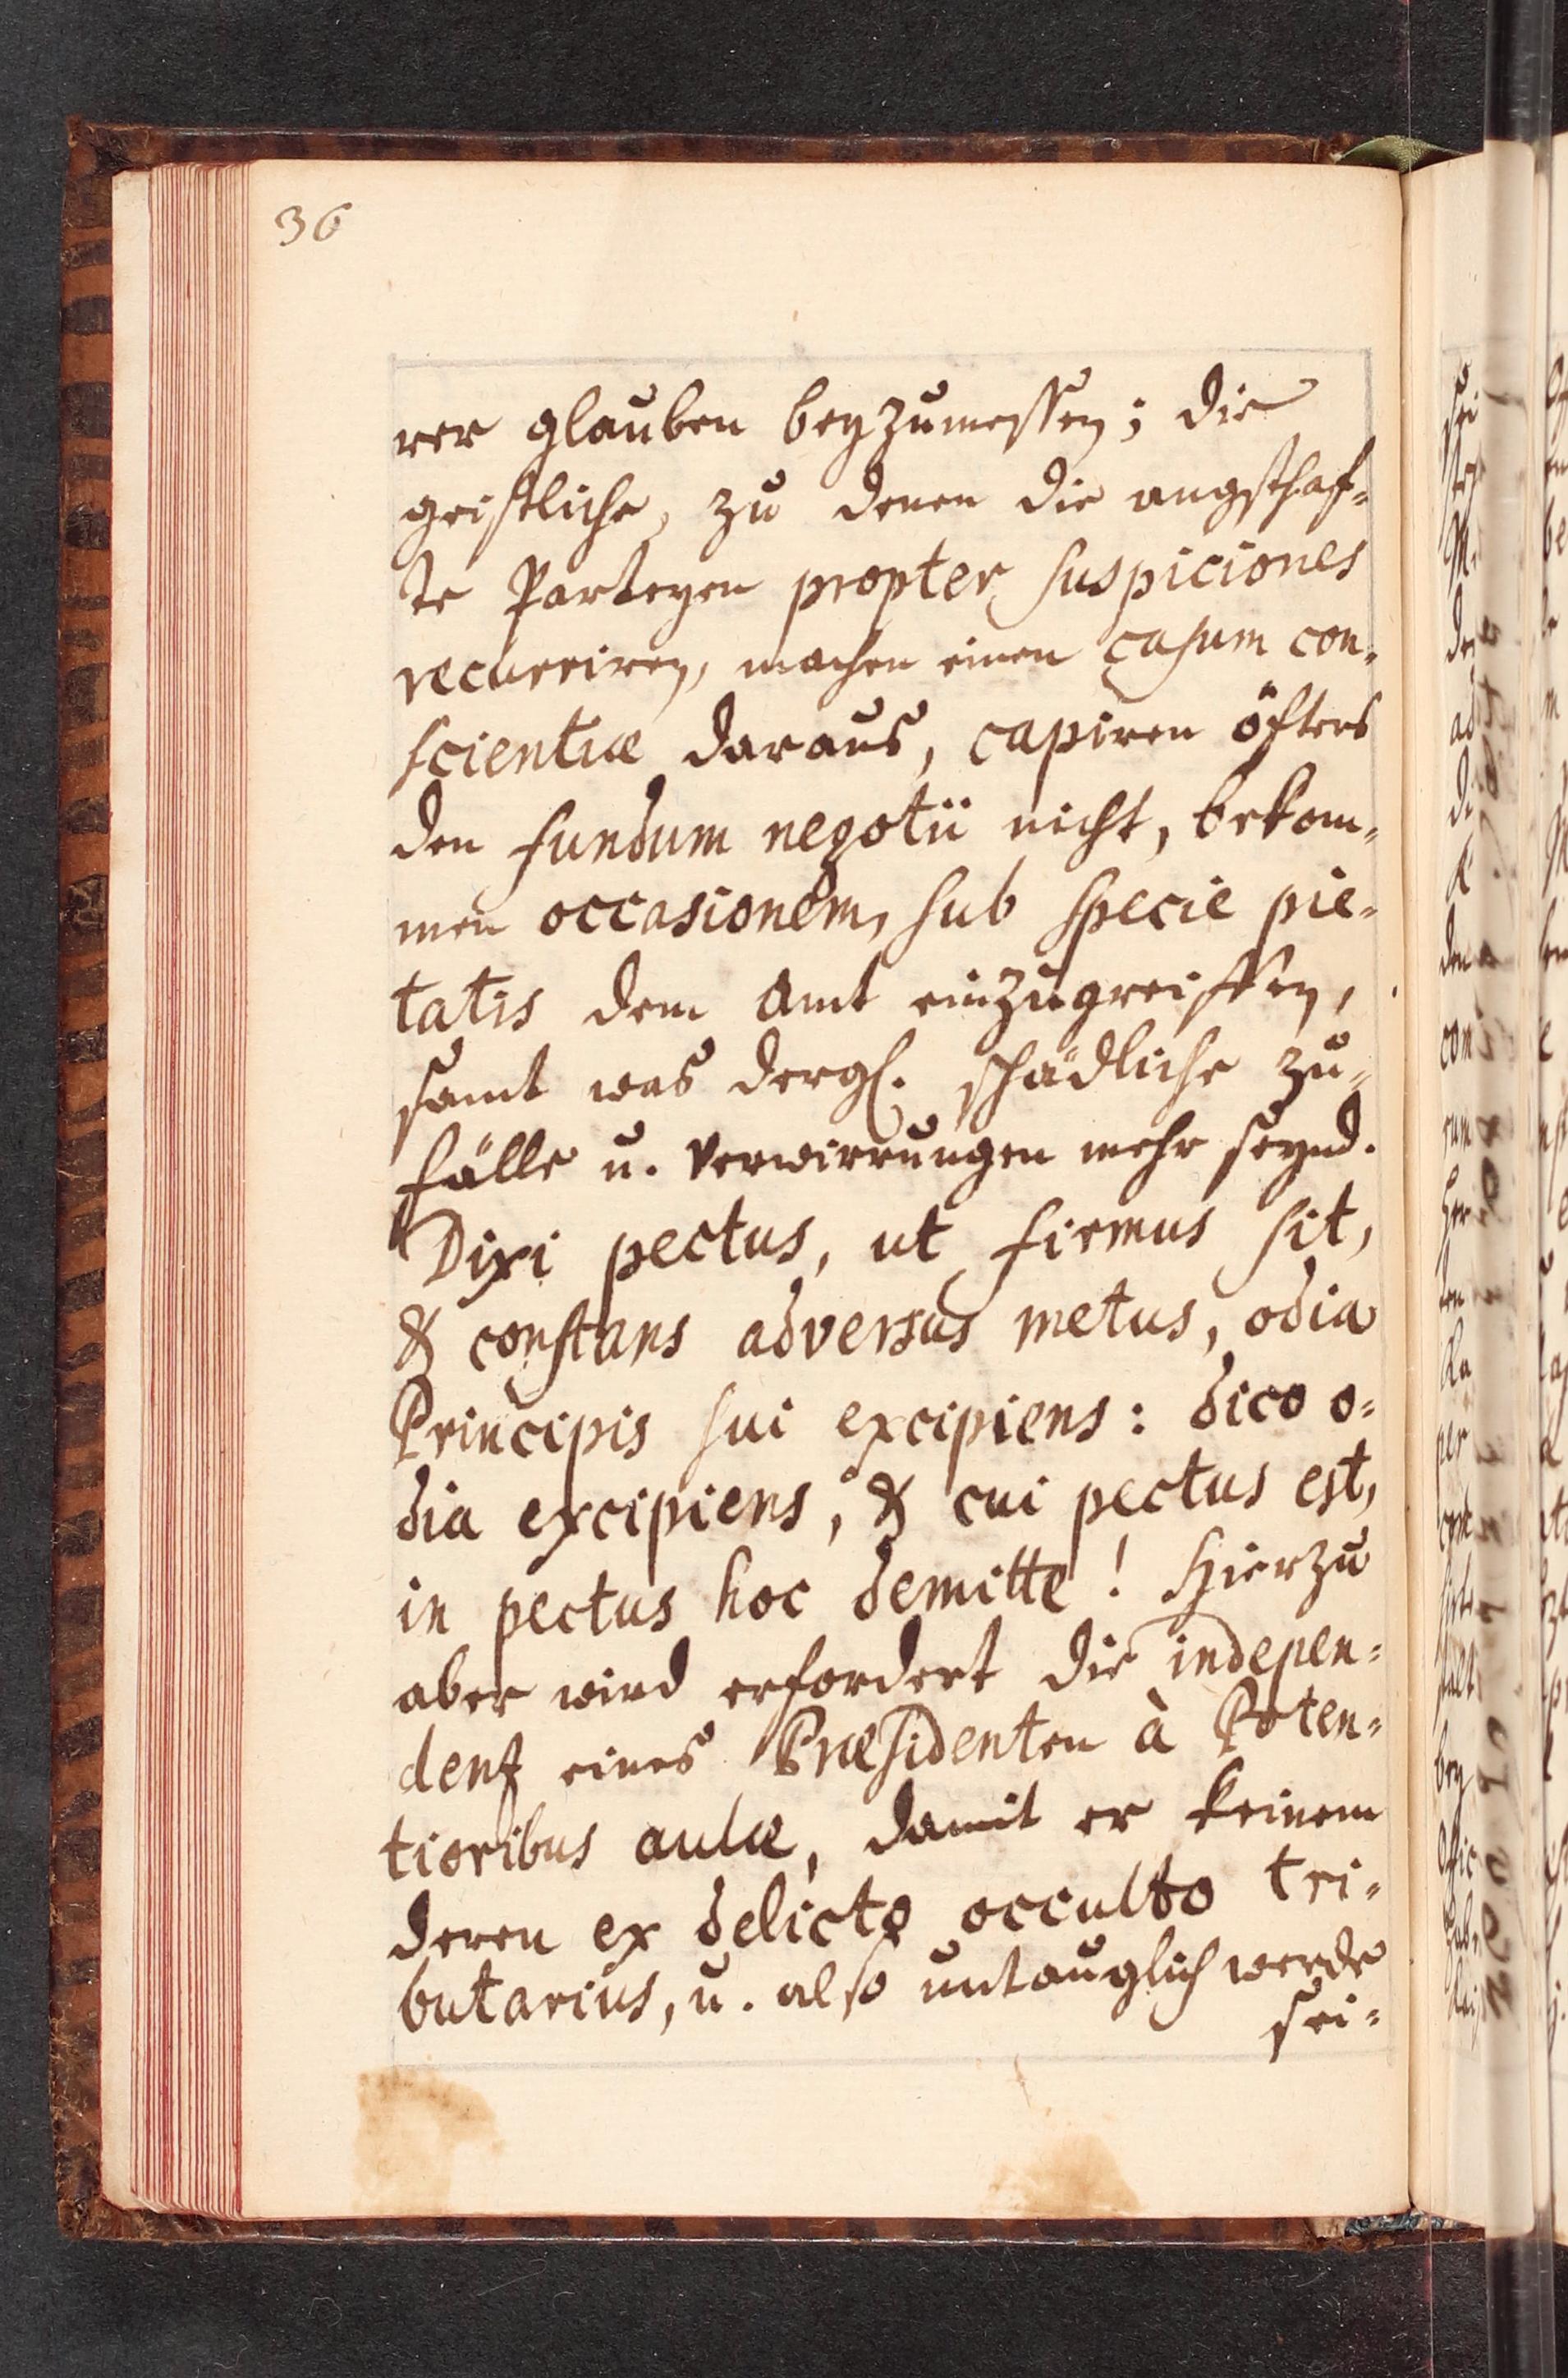 36
rer glauben beyzumessen; die
geistliche, zu denen die angsthaf=
te Parteyen propter suspiciones
recurriren, machen einen casum con=
scientiæ daraus, capiren öfters
den fundum negotii nicht, bekom=
men occasionem, sub specie pie=
tatis dem Amt einzugreiffen,
samt was dergl. schädliche zu=
fälle u. verwirrungen mehr seynd.
Dixi pectus, ut firmus sit,
& constans adversus metus, odia
Principis sui excipiens: dico o=
dia excipiens, & cui pectus est,
in pectus hoc demitte! Hierzu
aber wird erfordert die indepen=
denz eines Præsidenten à Poten=
tioribus aulæ, damit er keinem
deren ex delicto occulto tri=
butarius, u. also untauglich werde
sei=